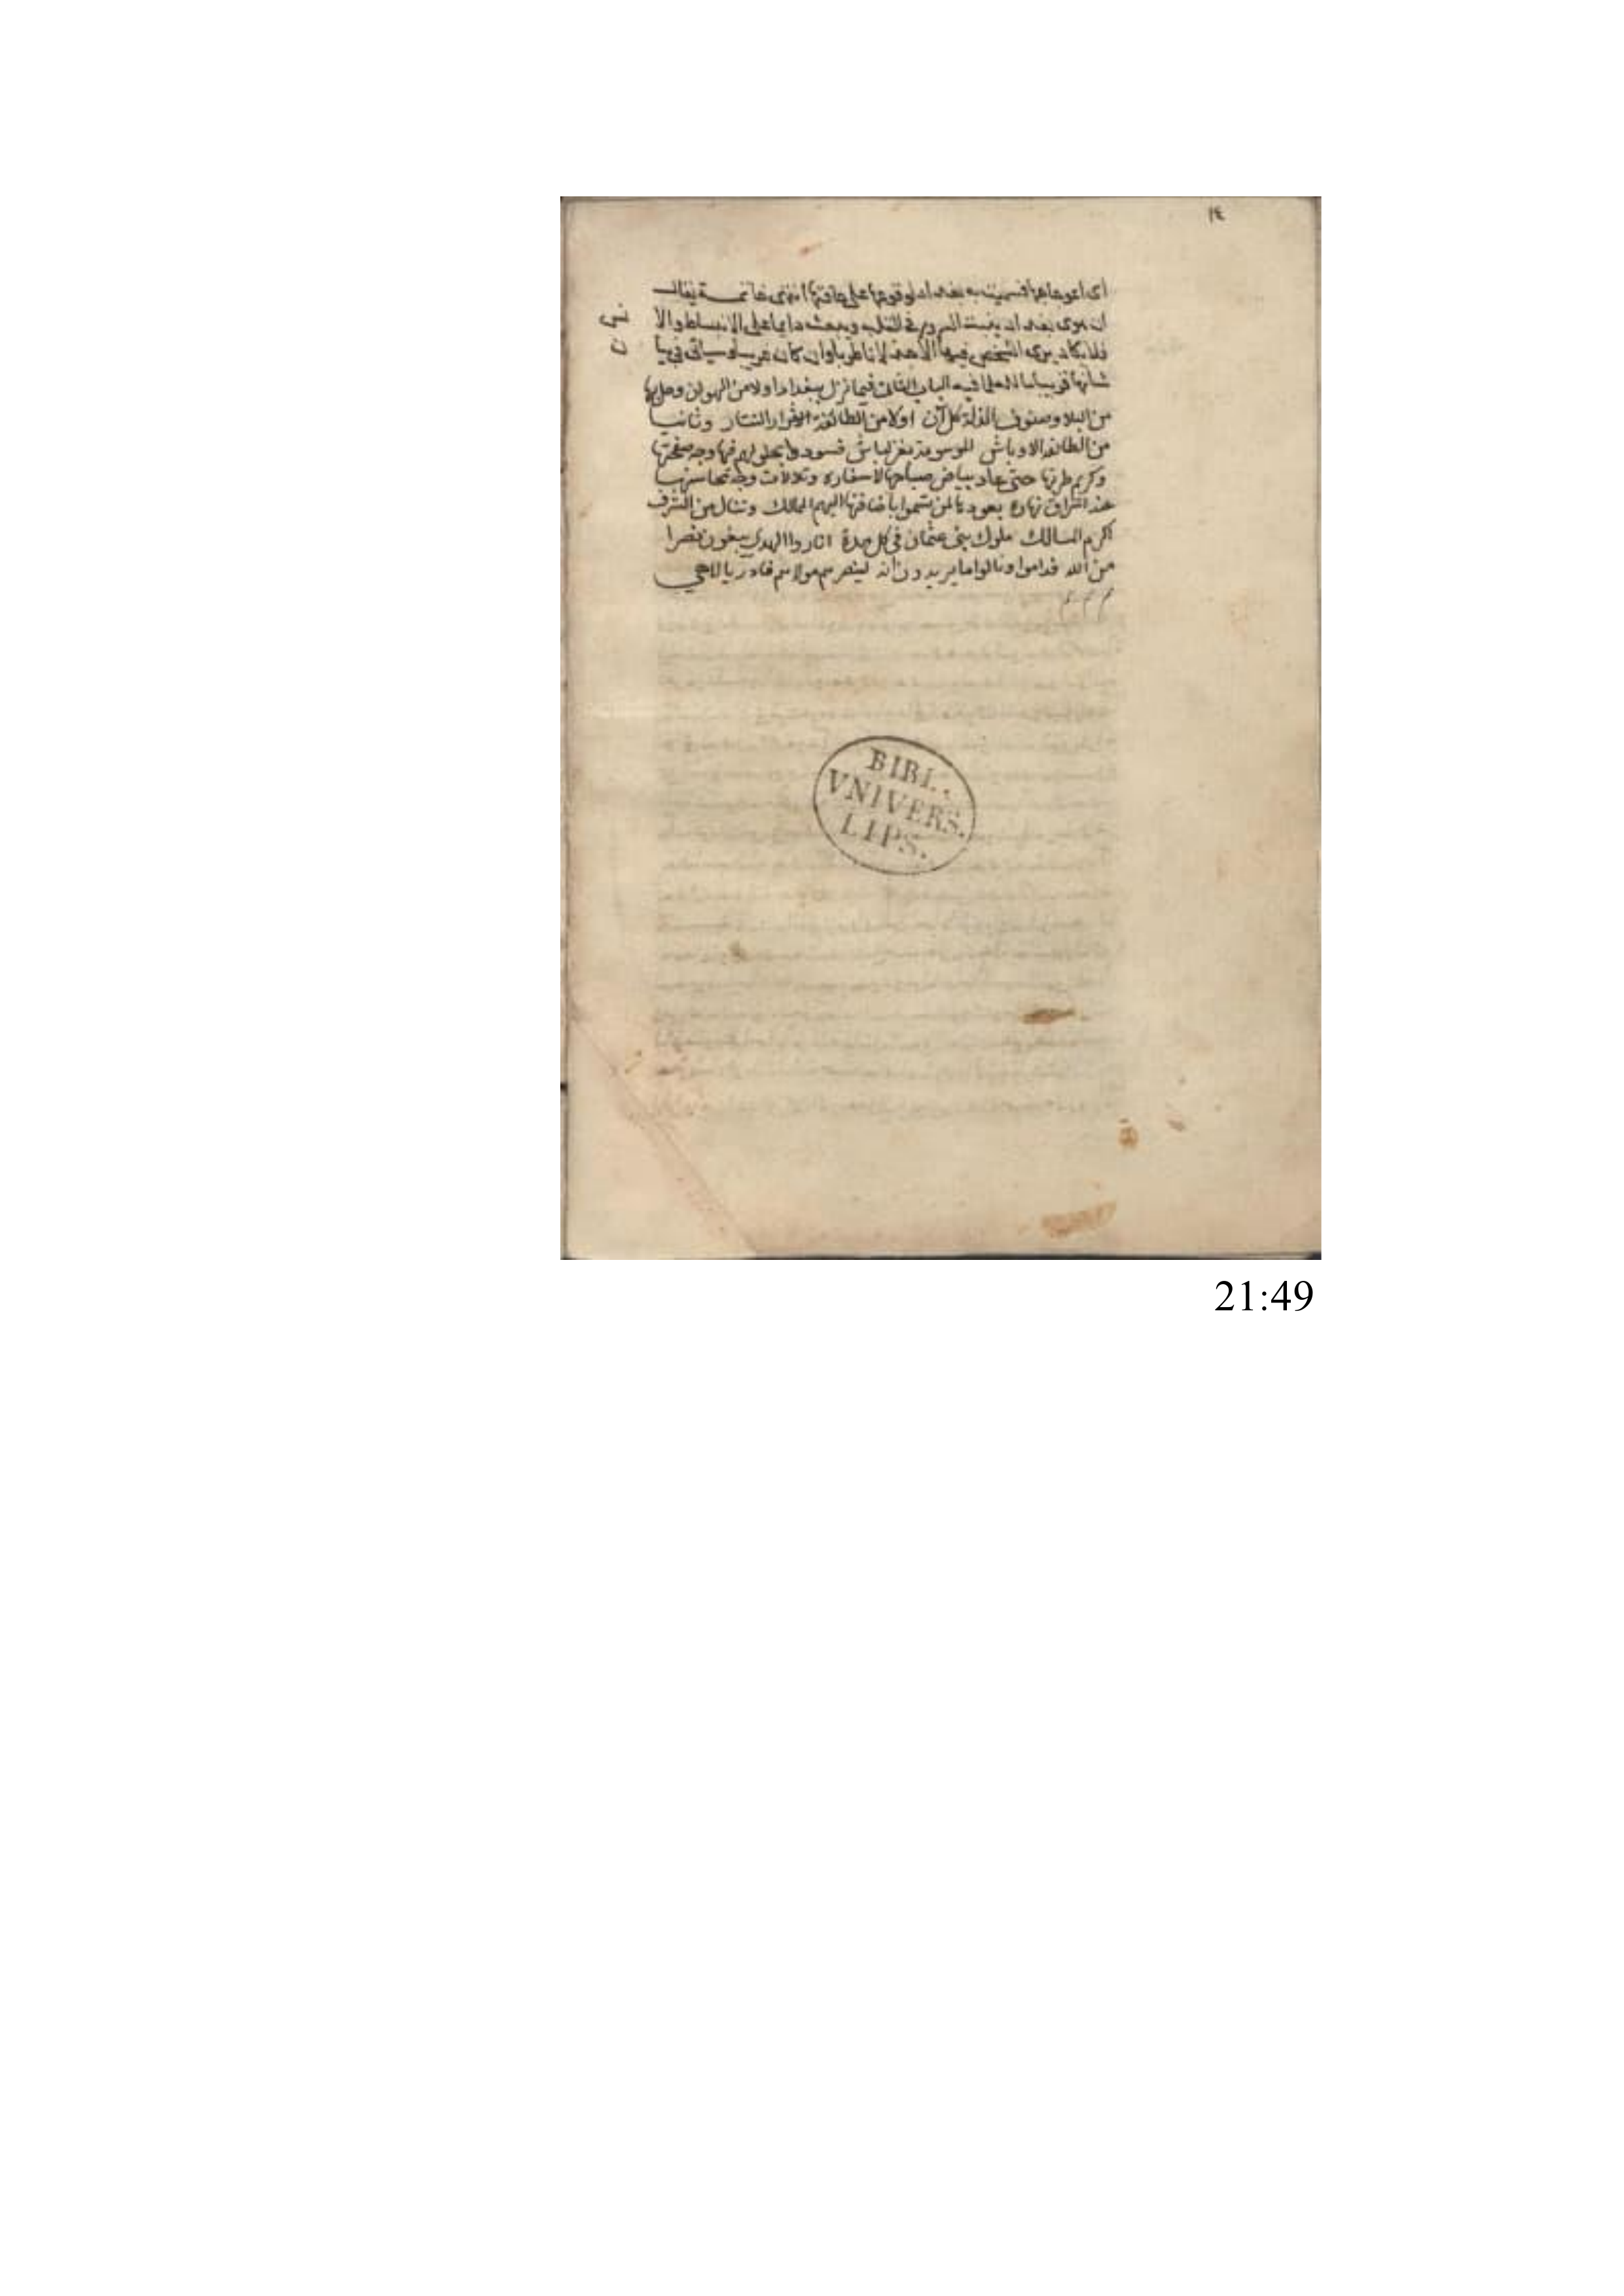 ١٤
اى اعوجاجها فسميت بغداد لوقوعها على حافتها انتهى خاتمة يقال
ان هوى بغداد ينبت السرور فى القلب ويبعث دايما على الانبساط والا
نس
فلا يكاد يرى الشخص فيها الا طربا وان كان غريبا وسياتى فى بيا
ن
شانها قول العلما فيه الباب الثانى فيما نزل ببغداد اولا من الهوان وحل بها
من البلا وصنوف الذلة كل آن اولا من الطائفة التتار وثانيا
من الطائفة الاوباش الموسومة بقزلباش فسودوا بحلولهم فيها وجه صفحتها
وكريم طرتها حتى عاد بياض صباحها لاسفاره وتلالات وجه محاسنها
عند اشراق نهاره بعودها لمن تسموا باضافتها اليهم الممالك وتنال من الشرف
اكرم المسالك ملوك بنى عثمان فى كل مدة اناروا الهدى يبغون نصرا
من الله فداموا ونالوا ما يريدون انه لينصرهم مولاهم
م م م
BIBL.
VNIVERS.
LIPS.
21:49